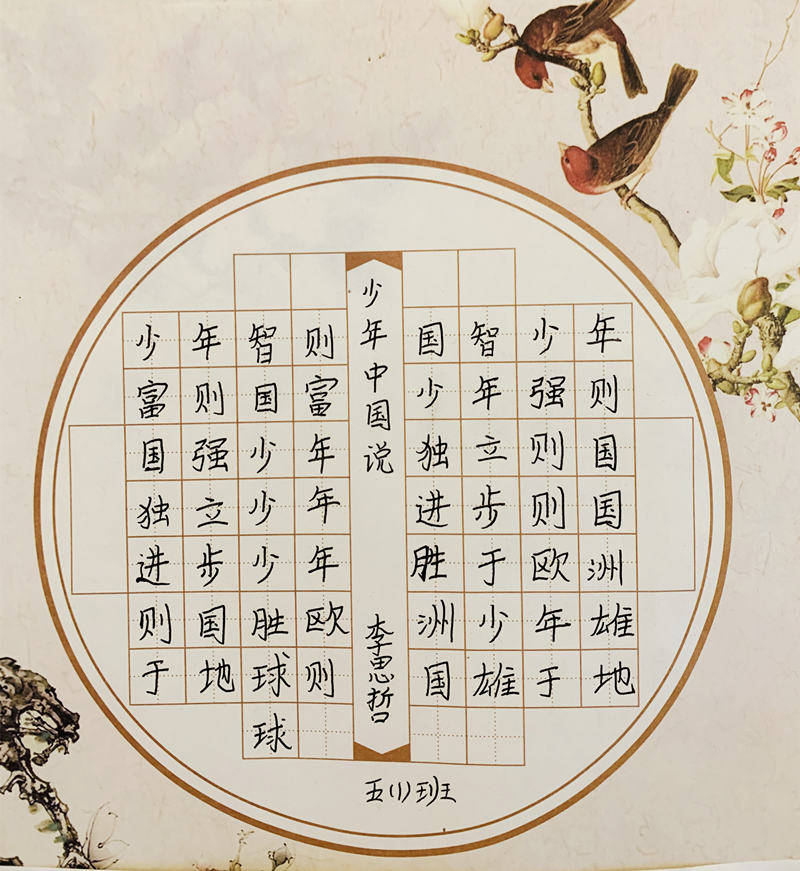 少年中国说
李思哲
少年智则国智少年
富则国富少年强则
国强少年独立则国
独立少年进步则国
进步少年胜于欧洲
则国胜欧洲少年雄
于地球则国雄于地
球
五(1)班